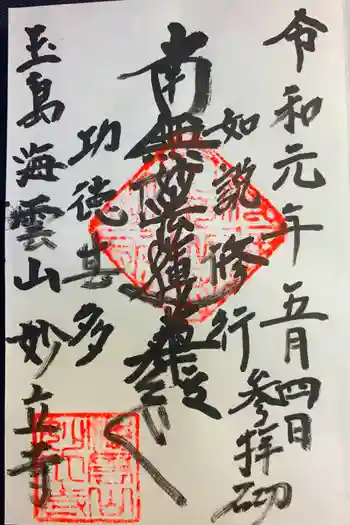 令和元年五月四日
参拝
如説修行
南無妙法蓮華経
功徳甚多
玉島海雲山妙立寺